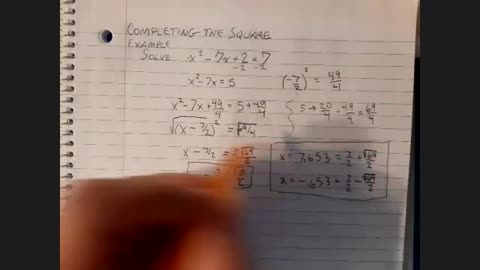 COMPLETING THE SQUARE
EXAMPLE
SOLVE x² - 7x + 2 = 7
-2 -2
x² - 7x = 5
(-7/2)² = 49/4
x² - 7x + 49/4 = 5 + 49/4
5 → 20/4 + 49/4 = 69/4
√(x - 7/2)² = √69/4
x - 7/2 = ±√69/2
x = 7.653 = 7/2 + √69/2
x = -.653 = 7/2 - √69/2